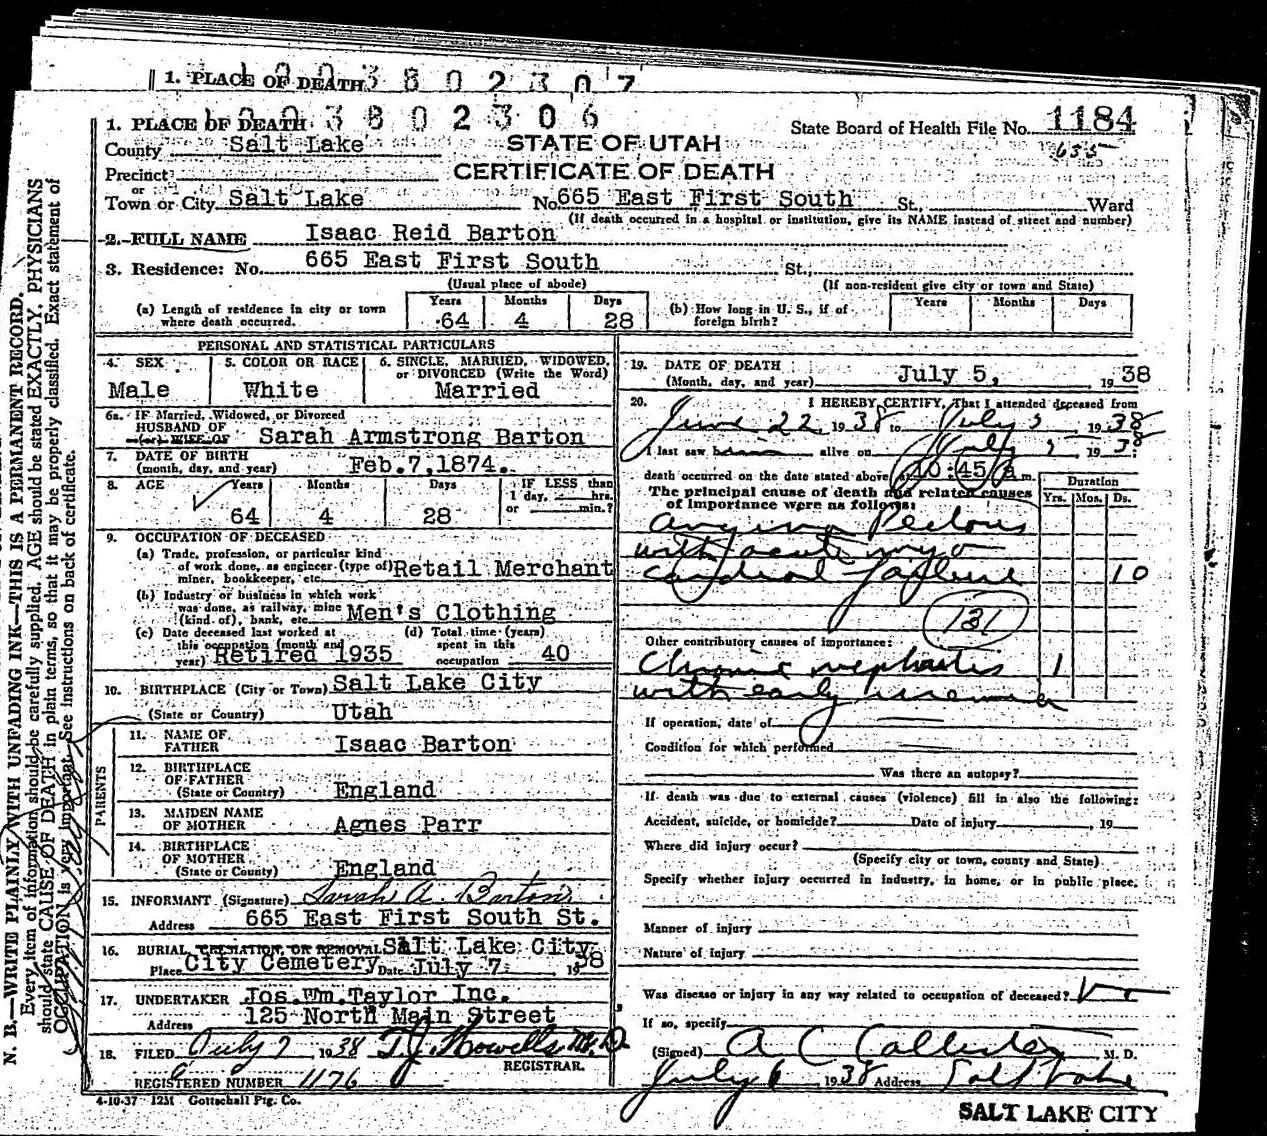 1. PLACE OF DEATH
1. PLACE OF DEATH
3 8 0 2 3 0 6
State Board of Health File No. 1184
635
County Salt Lake
STATE OF UTAH
Precinct
CERTIFICATE OF DEATH
or
Town or City Salt Lake No. 665 East First South St., Ward
(If death occurred in a hospital or institution, give its NAME instead of street and number)
2. FULL NAME Isaac Reid Barton
3. Residence: No. 665 East First South St.,
(Usual place of abode) (If non-resident give city or town and State)
(a) Length of residence in city or town where death occurred. Years 64 Months 4 Days 28
(b) How long in U. S., if of foreign birth? Years Months Days
PERSONAL AND STATISTICAL PARTICULARS
4. SEX Male
5. COLOR OR RACE White
6. SINGLE, MARRIED, WIDOWED, or DIVORCED (Write the Word) Married
6a. IF Married, Widowed, or Divorced
HUSBAND OF
(or) WIFE OF Sarah Armstrong Barton
7. DATE OF BIRTH
(month, day, and year) Feb.7,1874.
8. AGE Years 64 Months 4 Days 28 IF LESS than 1 day, hrs. or min.?
9. OCCUPATION OF DECEASED
(a) Trade, profession, or particular kind
of work done, as engineer (type of) Retail Merchant
miner, bookkeeper, etc.
(b) Industry or business in which work
was done, as railway, mine Men's Clothing
(kind of), bank, etc.
(c) Date deceased last worked at
this occupation (month and
year) Retired 1935
(d) Total time (years)
spent in this
occupation 40
10. BIRTHPLACE (City or Town) Salt Lake City
(State or Country) Utah
PARENTS
11. NAME OF
FATHER Isaac Barton
12. BIRTHPLACE
OF FATHER
(State or Country) England
13. MAIDEN NAME
OF MOTHER Agnes Parr
14. BIRTHPLACE
OF MOTHER
(State or Country) England
15. INFORMANT (Signature) Sarah A. Barton
Address 665 East First South St.
16. BURIAL, CREMATION, OR REMOVAL Salt Lake City
Place City Cemetery Date July 7 1938
17. UNDERTAKER Jos.Wm.Taylor Inc.
Address 125 North Main Street
18. FILED July 7 1938 T.J. Howells M.D.
REGISTRAR.
REGISTERED NUMBER 1176
4-10-37 12M Gottschall Ptg. Co.
19. DATE OF DEATH
(Month, day, and year) July 5, 1938
20. I HEREBY CERTIFY, That I attended deceased from
June 22 1938 to July 5, 1938
I last saw him alive on July 1938
death occurred on the date stated above, at 10:45 a m.
The principal cause of death and related causes
of importance were as follows:
Duration
Yrs. Mos. Ds.
angina Pectoris
with acute myo
cardial failure 10
131
Other contributory causes of importance:
Chronic nephritis 1
with early uremia
If operation, date of
Condition for which performed
Was there an autopsy?
If death was due to external causes (violence) fill in also the following:
Accident, suicide, or homicide? Date of injury , 19
Where did injury occur?
(Specify city or town, county and State)
Specify whether injury occurred in industry, in home, or in public place.
Manner of injury
Nature of injury
Was disease or injury in any way related to occupation of deceased? No
If so, specify
(Signed) A C Callister M. D.
July 6 1938 Address Salt Lake
SALT LAKE CITY
N. B.—WRITE PLAINLY WITH UNFADING INK—THIS IS A PERMANENT RECORD.
Every item of information should be carefully supplied. AGE should be stated EXACTLY. PHYSICIANS
should state CAUSE OF DEATH in plain terms, so that it may be properly classified. Exact statement of
OCCUPATION is very important. See instructions on back of certificate.